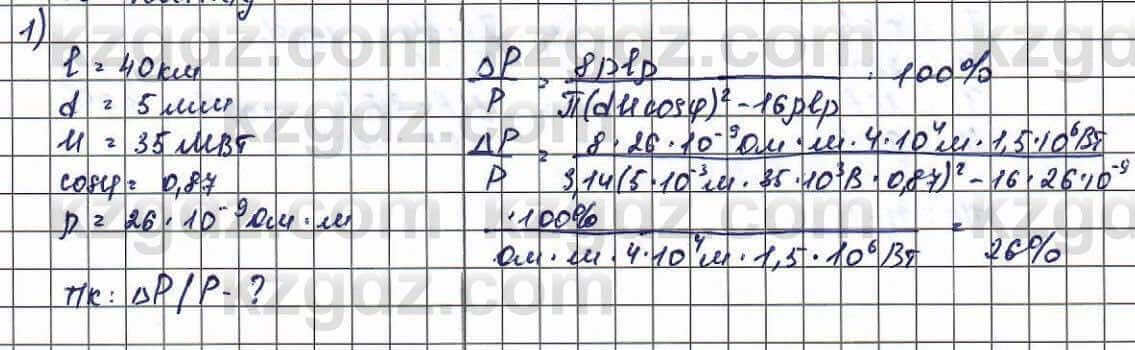 1)
l = 40км
d = 5 мм
И = 35 МВт
cosφ = 0,87
ρ = 26·10⁻⁹ Ом·м
Тк: ΔP/P - ?
ΔP/P = 8ρlp / П(dИcosφ)² - 16ρlp · 100%
ΔP/P = 8·26·10⁻⁹Ом·м·4·10⁴м·1,5·10⁶Вт / 3,14(5·10⁻³м·35·10³В·0,87)² - 16·26·10⁻⁹
·100% / Ом·м·4·10⁴м·1,5·10⁶Вт = 26%
kzgdz.com